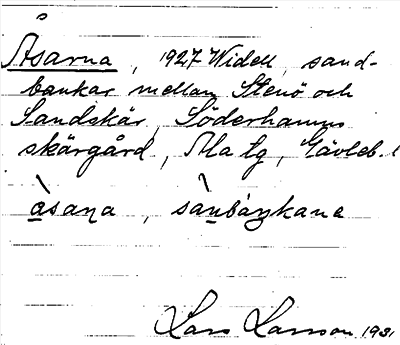 Åsarna, 1927 Widell, sand-
bankar mellan Stenö och
Sandskär, Söderhamns
skärgård, Ala tg, Gävleb. l
àsaṇa, sanbàŋkana
Lars Larsson 1931